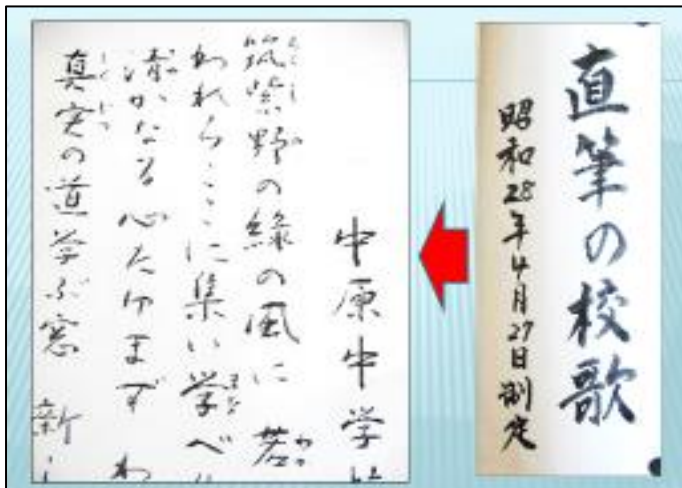 直筆の校歌
昭和28年4月27日制定
中原中学
筑紫野の緑の風に 若
われらここに集い学べ
清かなる心たゆまず わ
真実の道学ぶ窓 新し